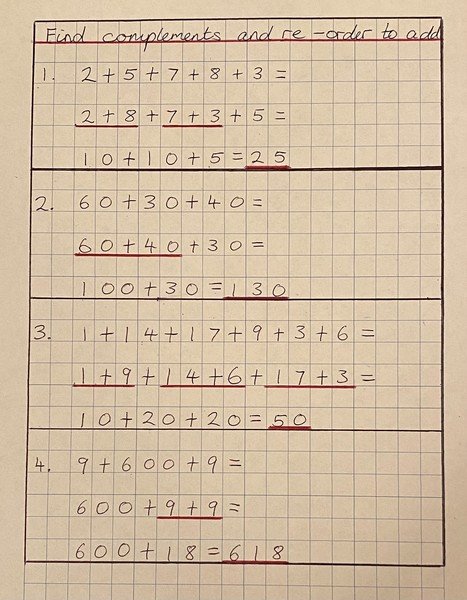 Find complements and re-order to add
1. 2+5+7+8+3=
2+8+7+3+5=
10+10+5=25
2. 60+30+40=
60+40+30=
100+30=130
3. 1+14+17+9+3+6=
1+9+14+6+17+3=
10+20+20=50
4. 9+600+9=
600+9+9=
600+18=618